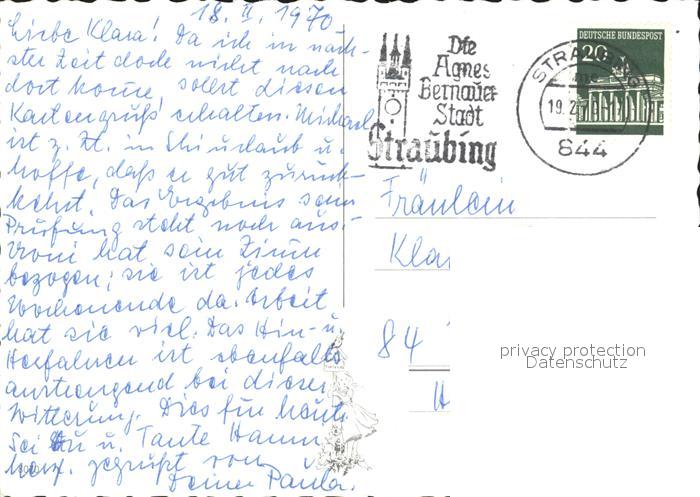 18. II. 1970
Liebe Klara! Da ich in näch-
ster Zeit doch nicht nach
dort komme sollst diesen
Kartengruß erhalten. Michael
ist z. Zt. in Skiurlaub u.
hoffe, daß er gut zurück-
kehrt. Das Ergebnis sein
Prüfung steht noch aus.
Vroni hat sein Zimm
bezogen; sie ist jedes
Wochenende da. Arbeit
hat sie viel. Das Hin- u.
Herfahren ist ebenfalls
anstrengend bei dieser
Witterung. Dies für heute
Sei Du u. Tante Hann
herz. gegrüßt von
Deiner Paula.
Die
Agnes
Bernauer
Stadt
Straubing
DEUTSCHE BUNDESPOST
20
STRAUBING
19.2.70
844
Fräulein
Klar
84
H
privacy protection
Datenschutz